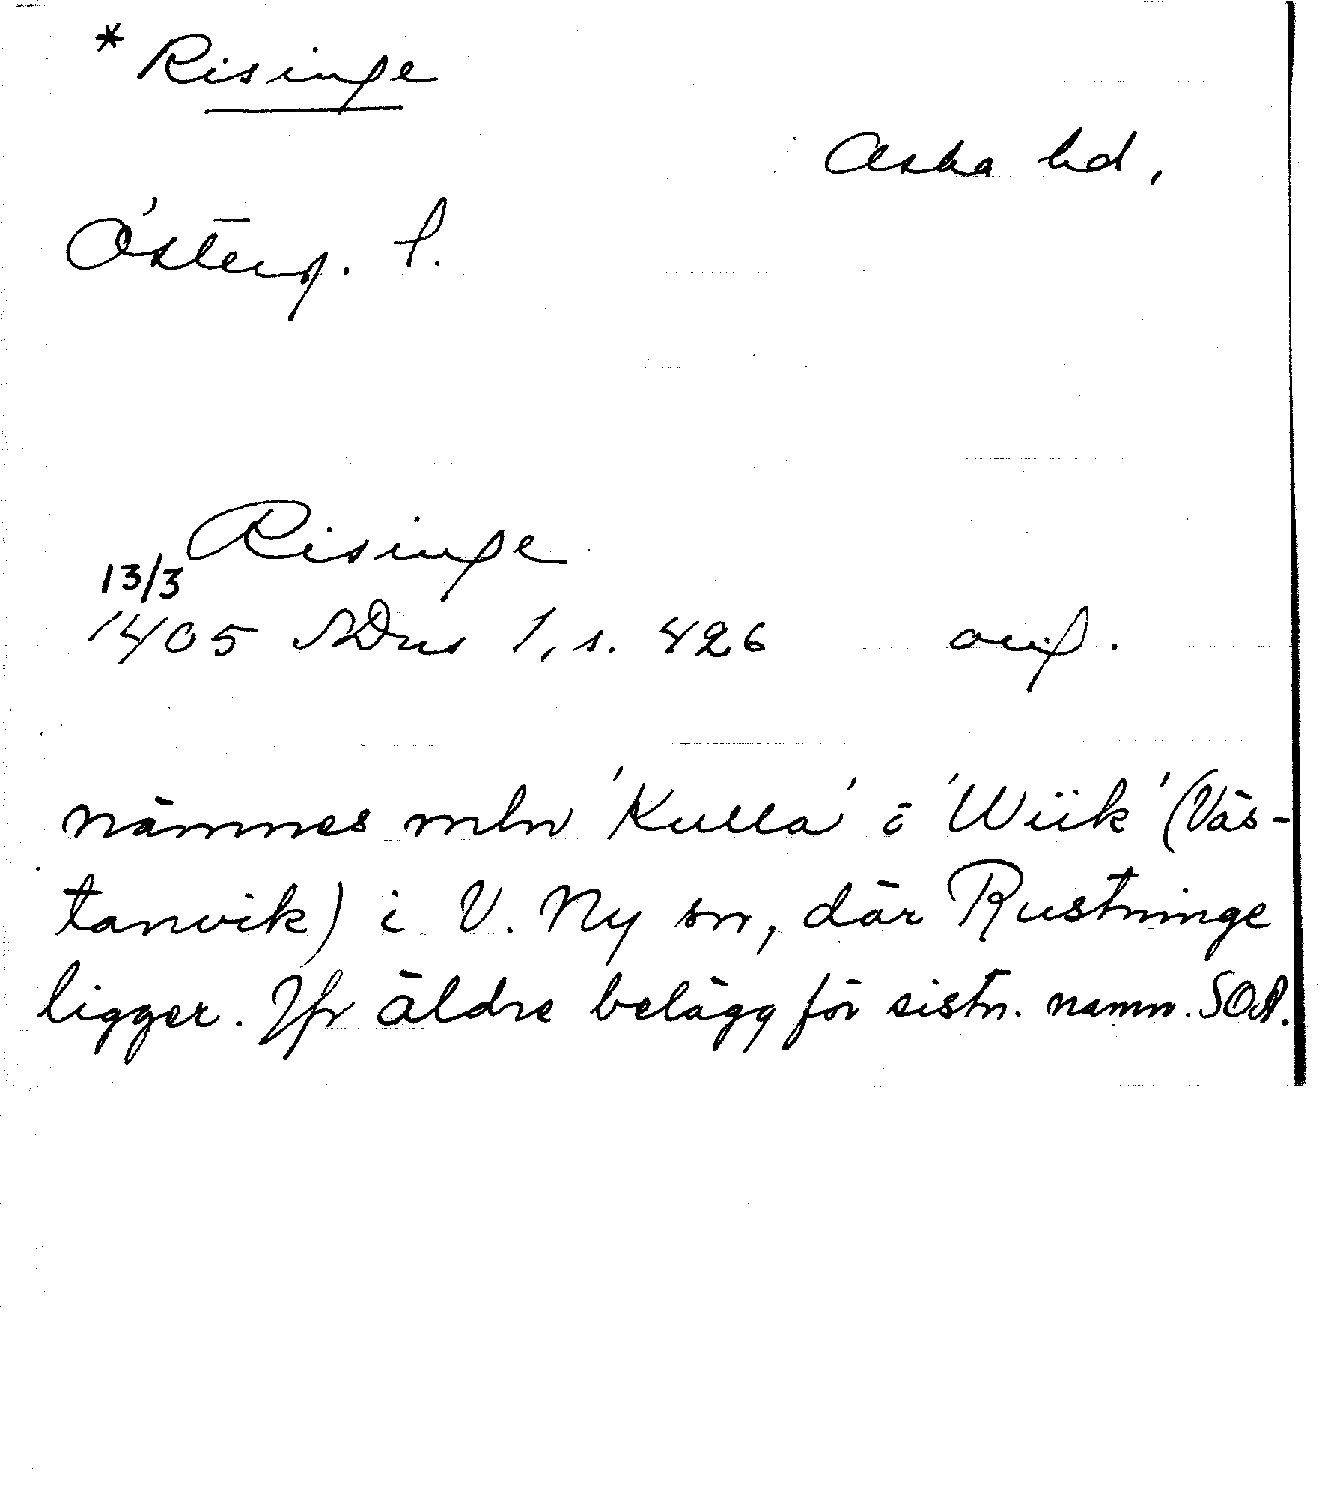 * Risinge
Aska hd,
Österg. l.
Risinge
13/3
1405 SDns 1, s. 426 avs.
nämnes mln 'Kulla' o 'Wiik' (Väs-
tanvik) i V. Ny sn, där Rustninge
ligger. Jfr äldre belägg för sistn. namn. SOA.